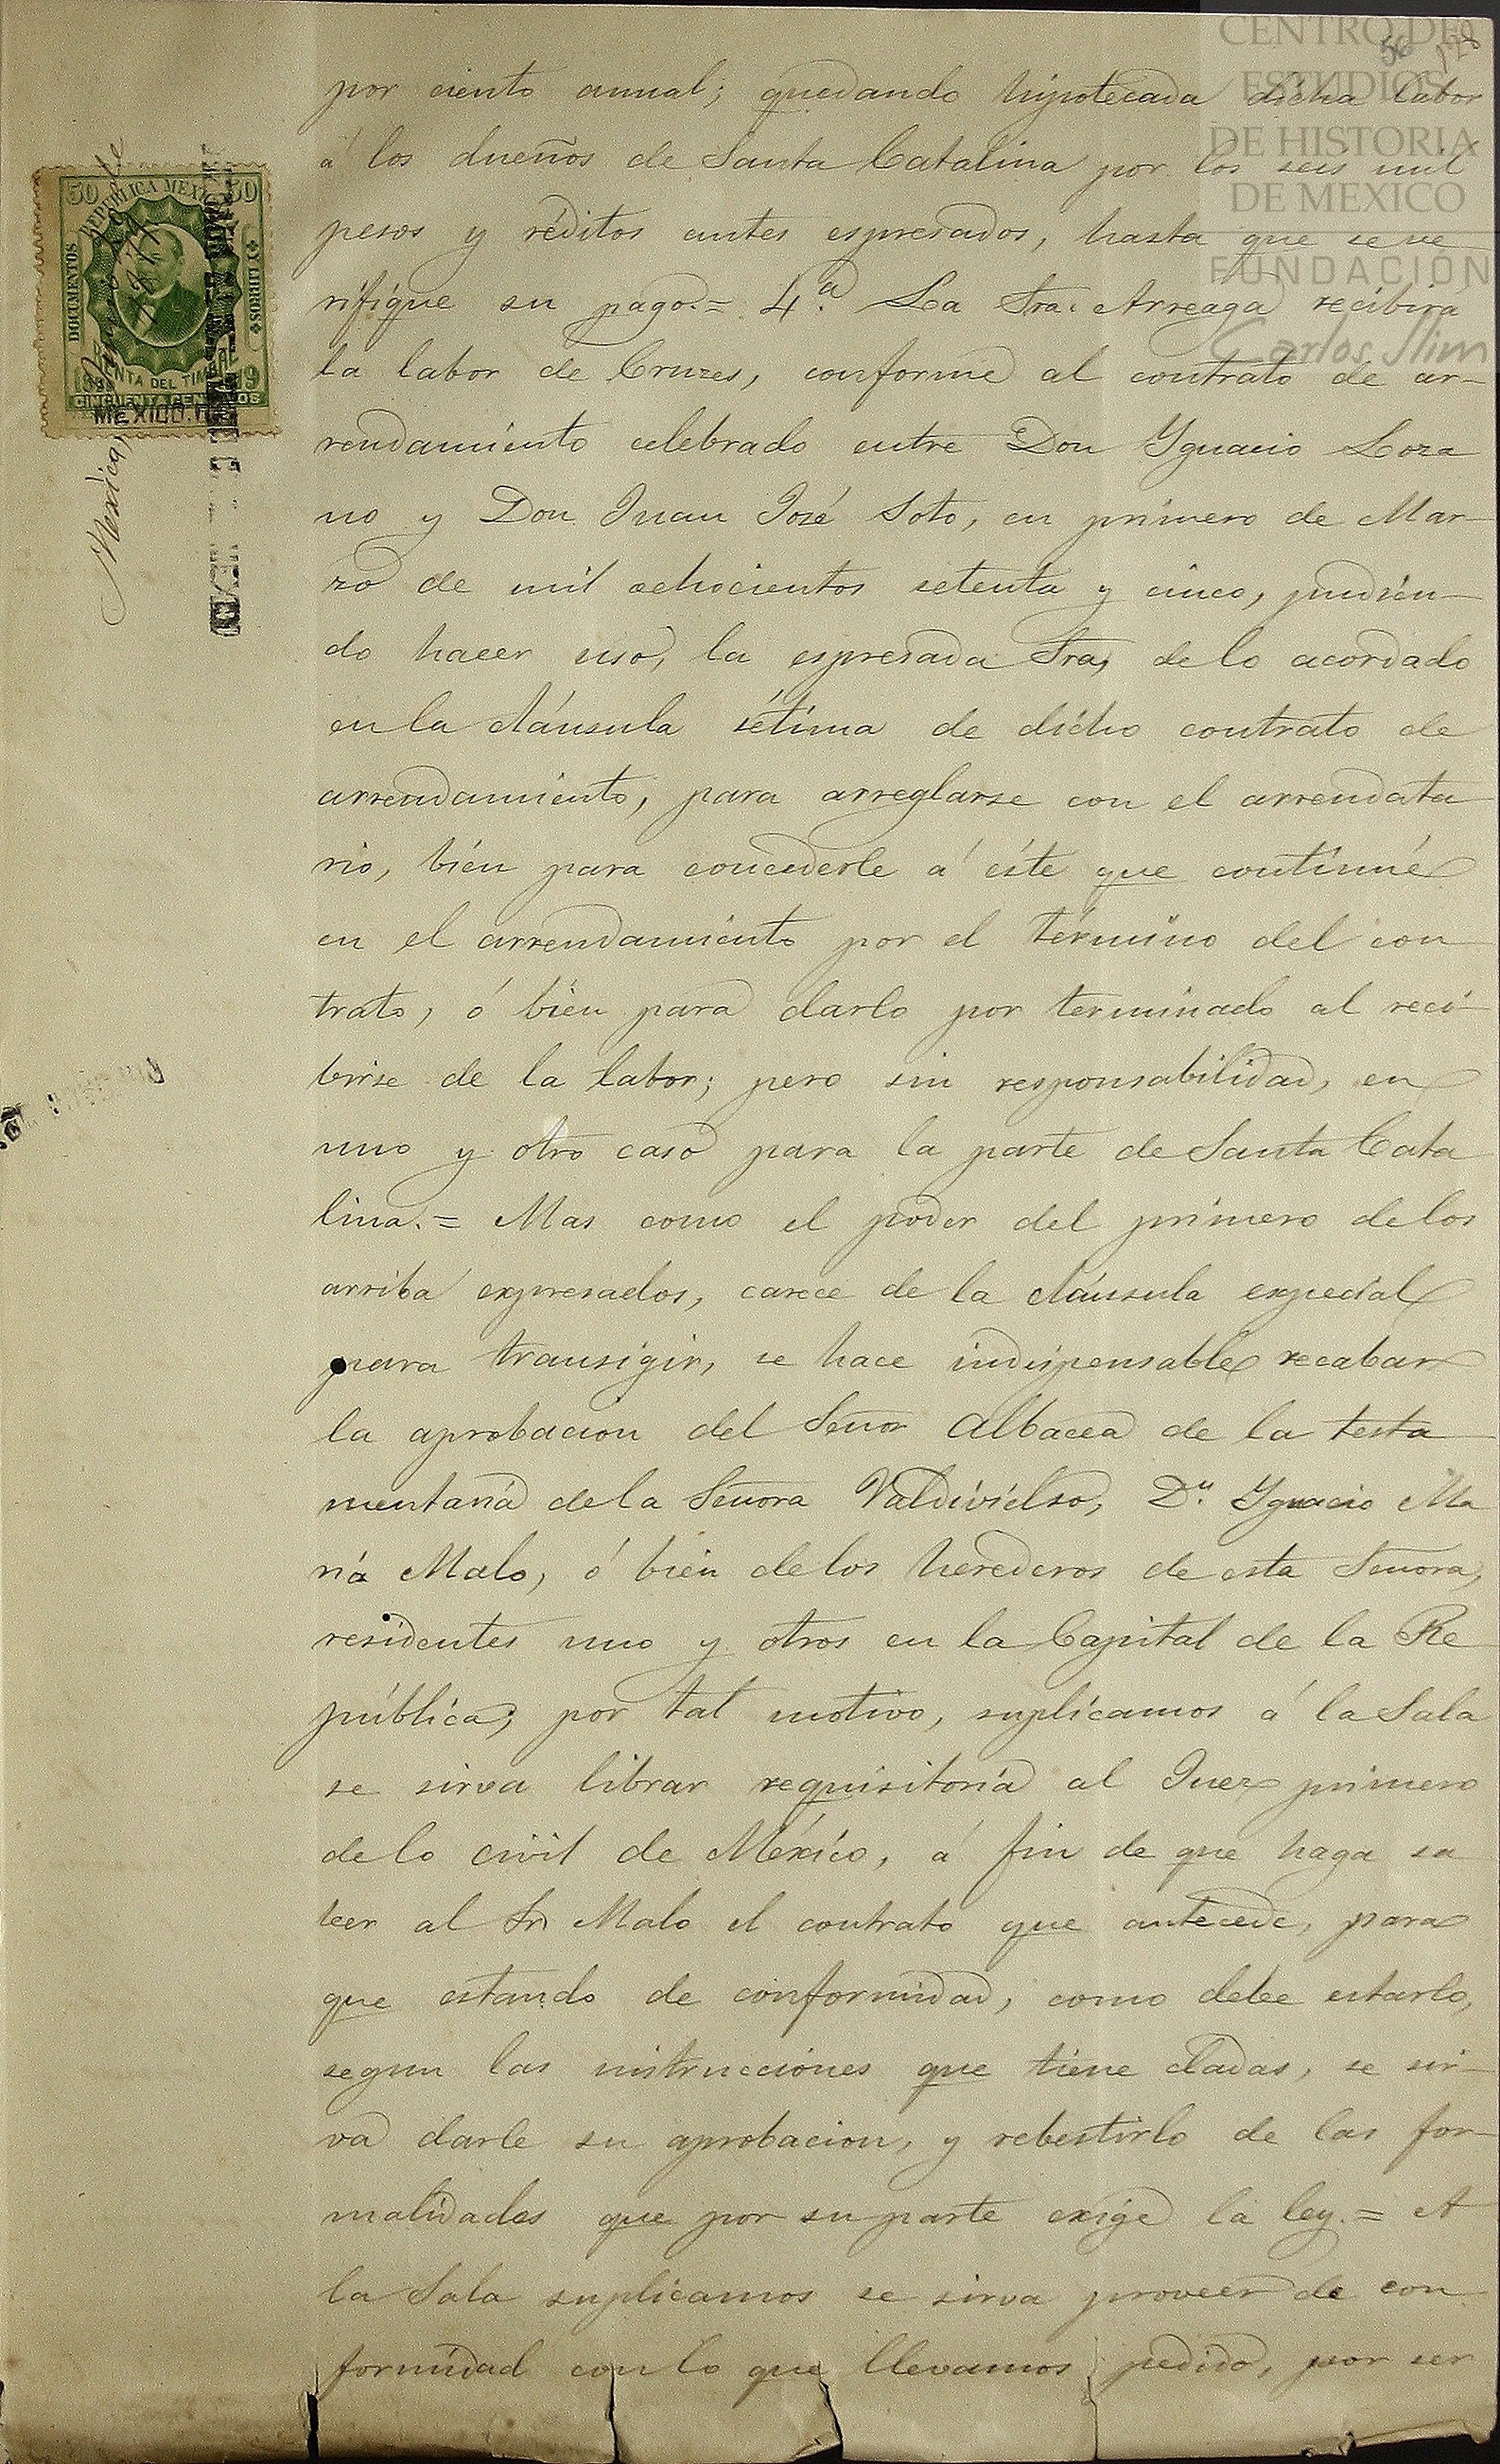 CENTRO DE
ESTUDIOS
DE HISTORIA
DE MEXICO
FUNDACIÓN
Carlos Slim
56
128
50 50
REPUBLICA MEXICANA
DOCUMENTOS Y LIBROS
RENTA DEL TIMBRE
CINCUENTA CENTAVOS
MEXICO.
Mexico,
por ciento anual; quedando hipotecada dicha labor
á los dueños de Santa Catalina por los seis mil
pesos y réditos antes espresados, hasta que se ve
rifique su pago.= 4.ª La Sra. Arreaga recibirá
la labor de Cruzes, conforme al contrato de ar-
rendamiento celebrado entre Don Ygnacio Loza
no y Don Juan José Soto, en primero de Mar-
zo de mil ochocientos setenta y cinco, pudien-
do hacer uso, la espresada Sra, de lo acordado
en la cláusula sétima de dicho contrato de
arrendamiento, para arreglarse con el arrendata
rio, bién para concederle á éste que continúe
en el arrendamiento por el término del con
trato, ó bien para darlo por terminado al reci-
birse de la labor; pero sin responsabilidad, en
uno y otro caso para la parte de Santa Cata
lina.= Mas como el poder del primero de los
arriba expresados, carece de la cláusula especial
para transigir, se hace indispensable recabar
la aprobacion del Señor Albacea de la testa
mentaría de la Señora Valdivielso, Dn. Ygnacio Ma
ría Malo, ó bien de los herederos de esta Señora,
residentes uno y otros en la Capital de la Re
pública; por tal motivo, suplicamos á la Sala
se sirva librar requisitoria al Juez primero
de lo civil de México, á fin de que haga sa
ber al Sr Malo el contrato que antecede, para
que estando de conformidad, como debe estarlo,
segun las instrucciones que tiene dadas, se sir-
va darle su aprobacion, y rebestirlo de las for-
malidades que por su parte exige la ley.= A
la Sala suplicamos se sirva proveer de con
formidad con lo que llevamos pedido, por ser